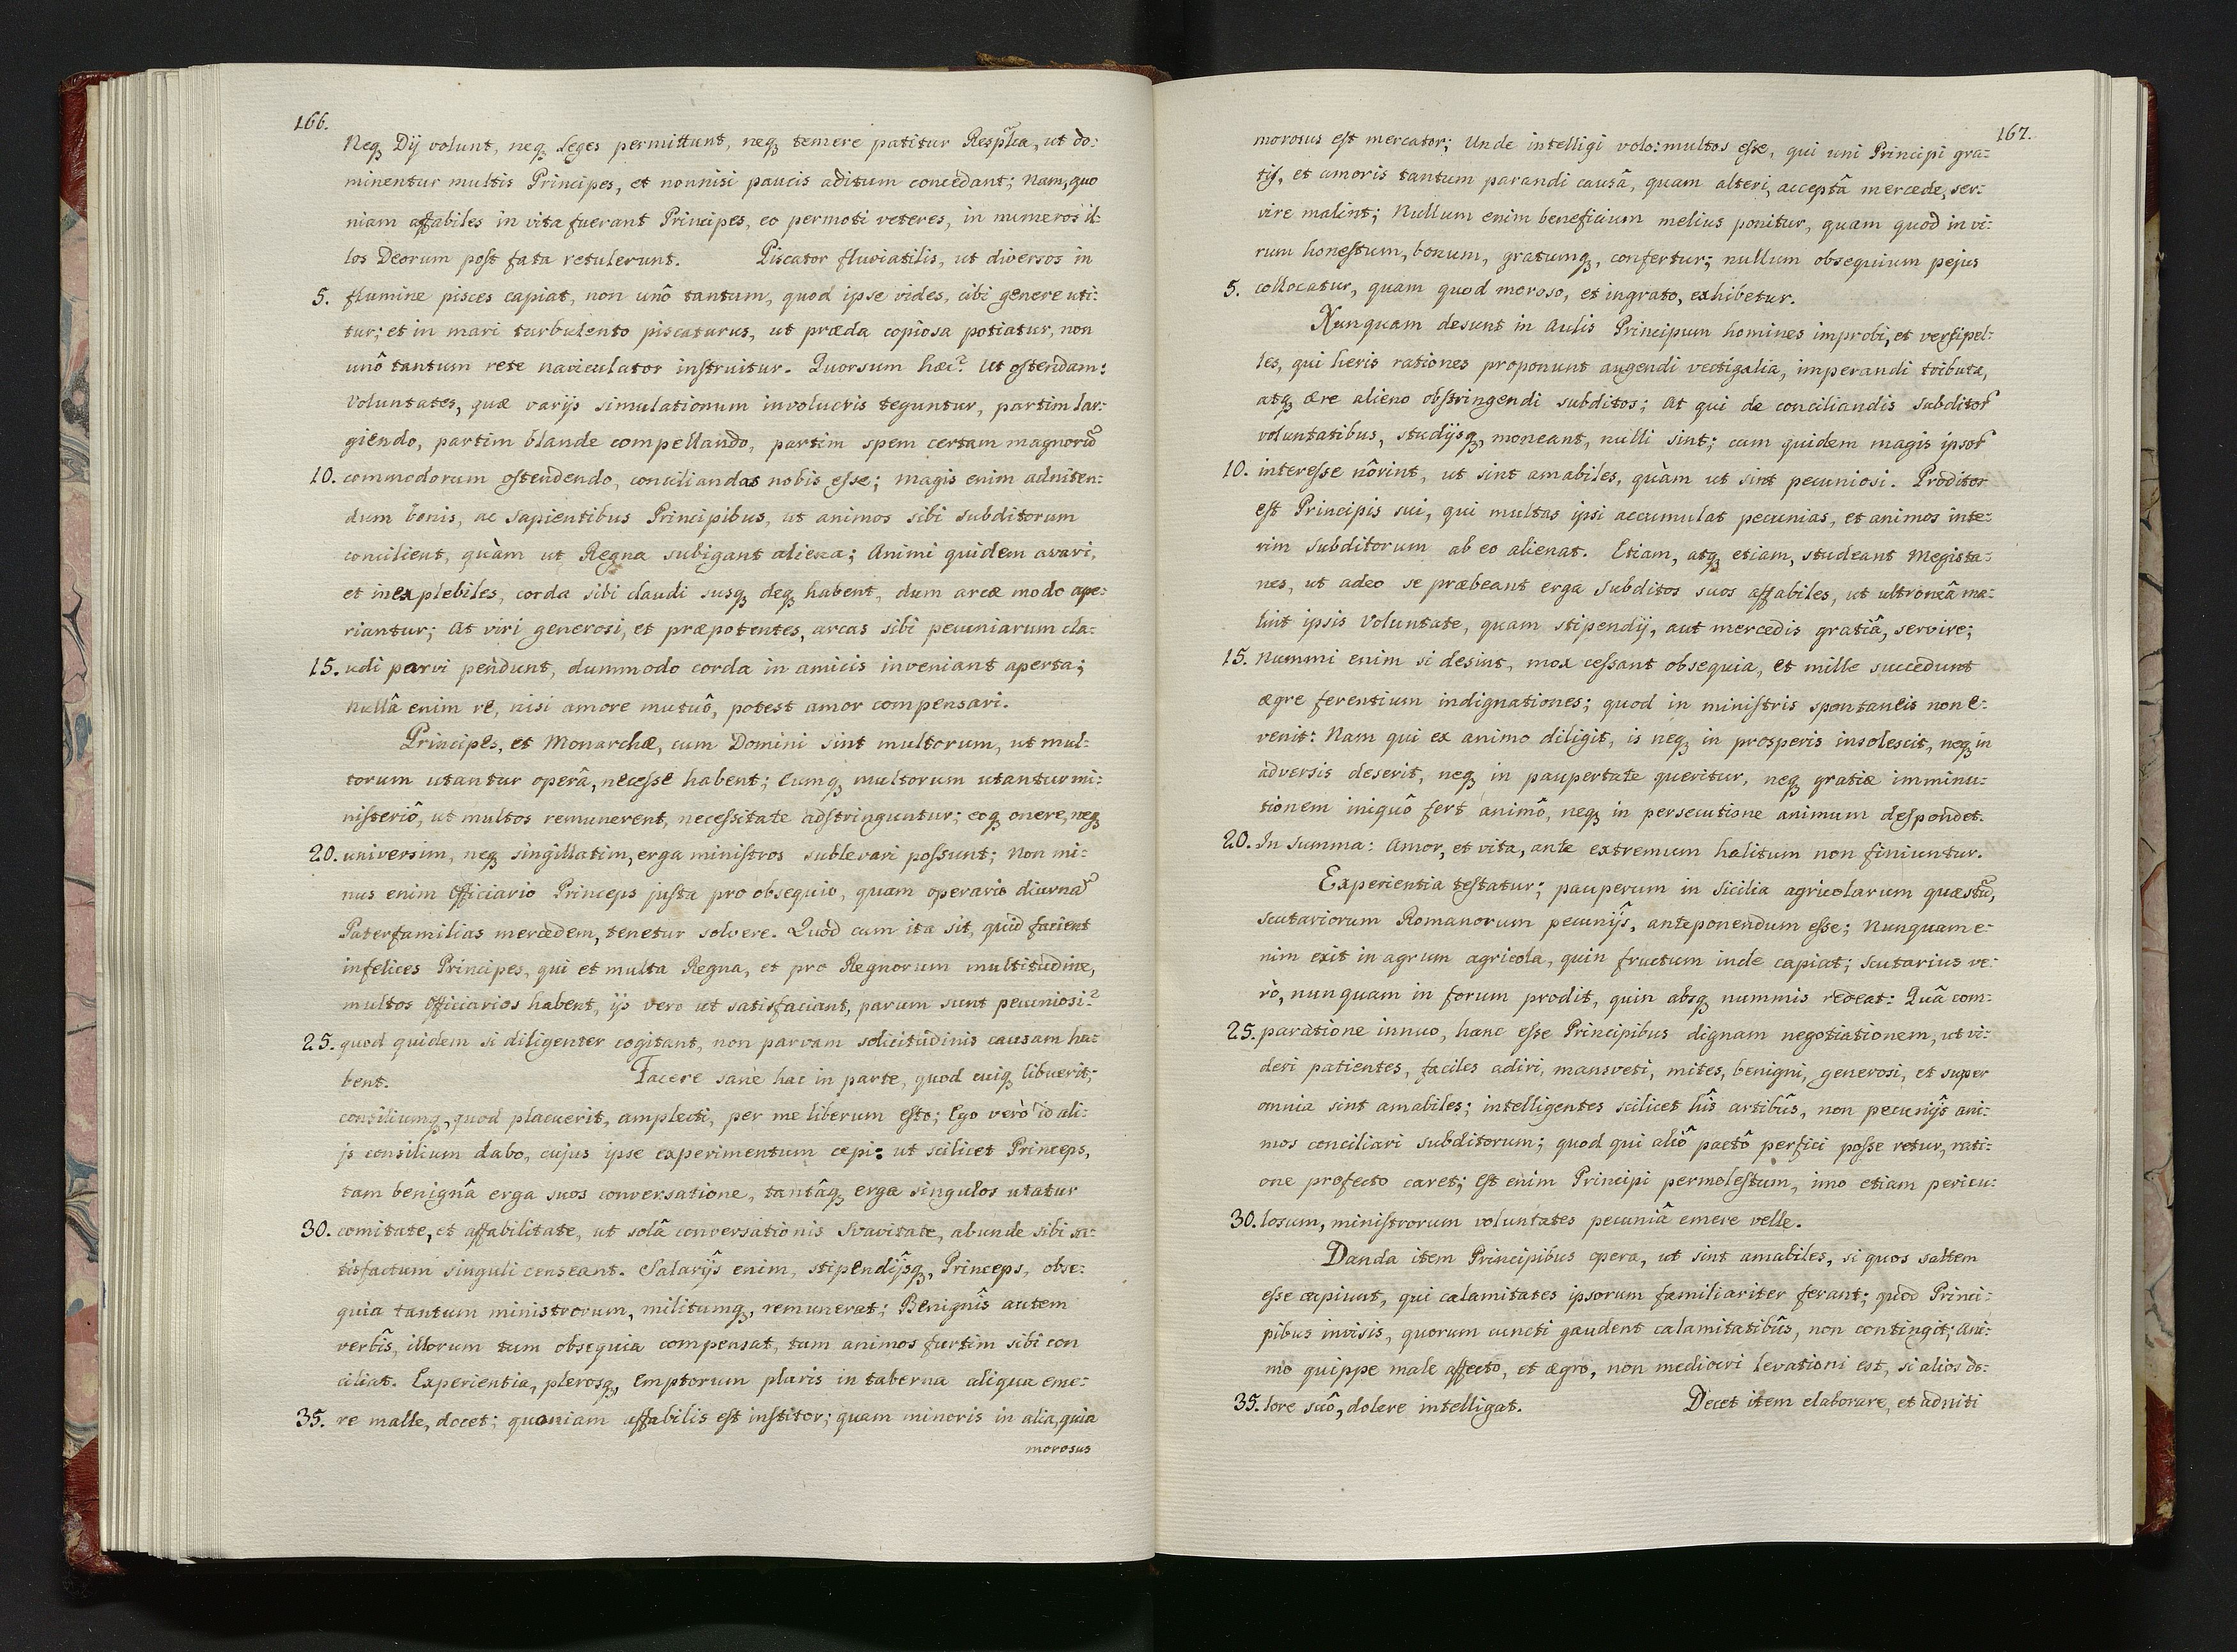 166.
Neq3 Dij volunt, neq3 Leges permittunt, neq3 temere patitur Resplĩca, ut do:
minentur multis Principes, et nonnisi paucis aditum concedant; Nam, quo
niam affabiles in vita fuerant Principes, eo permoti veteres, in numeros il:
los Deorum post fata retulerunt. Piscator fluviatilis, ut diversos in
5. flumine pisces capiat, non unô tantum, quod ipse vides, cibi genere uti:
tur; et in mari turbulento piscaturus, ut præda copiosa potiatur, non
unô tantum rete naviculator instruitur. Quorsum hæc? Ut ostendam:
Voluntates, quæ varijs simulationum involucris teguntur, partim lar:
giendo, partim blande compellando, partim spem certam magnorũ
10. commodorum ostendendo, conciliandas nobis esse; Magis enim adniten:
dum bonis, ac Sapientibus Principibus, ut animos sibi Subditorum
concilient, quàm ut Regna subigant aliena; Animi quidem avari,
et inexplebiles, corda sibi claudi susq3 deq3 habent, dum arcæ modo ape:
riantur; At viri generosi, et præpotentes, arcas sibi pecuniarum cla:
15. udi parvi pendunt, dummodo corda in amicis inveniant aperta;
Nullâ enim re, nisi amore mutuô, potest amor compensari.
Principes, et Monarchæ, cum Domini sint multorum, ut mul:
torum utantur operâ, necesse habent; Cumq3 multorum utantur mi:
nisteriô, ut multos remunerent, necessitate adstringuntur; eoq3 onere, neq3
20. universim, neq3 singillatim, erga ministros sublevari possunt; Non mi:
nus enim Officiario Princeps justa pro obsequio, quam operario diurnã
Paterfamilias mercedem, tenetur solvere. Quod cum ita sit, quid facient
infelices Principes, qui et multa Regna, et pro Regnorum multitudine,
multos Officiarios habent, ijs vero ut satisfaciant, parum sunt pecuniosi?
25. quod quidem si diligenter cogitant, non parvam solicitudinis causam ha:
bent. Facere sane hac in parte, quod cuiq3 libuerit;
consiliumq3, quod placuerit, amplecti, per me liberum esto; Ego verò id ali:
js consilium dabo, cujus ipse experimentum cepi: ut scilicet Princeps,
tam benignâ erga suos conversatione, tantâq3 erga singulos utatur
30. comitate, et affabilitate, ut solâ conversationis Svavitate, abunde sibi sa:
tisfactum singuli censeant. Salarijs enim, stipendijsq3, Princeps, obse:
quia tantum ministrorum, militumq3, remunerat; Benignîs autem
verbîs, illorum tum obsequia compensat, tum animos furtim sibi con
ciliat. Experientia, plerosq3, Emptorum pluris in taberna aliqua eme:
35. re malle, docet; quoniam affabilis est institor; quam minoris in alia, quia
morosus
167.
morosus est mercator; Unde intelligi volo: multos esse, qui uni Principi gra:
tijs, et amoris tantum parandi causâ, quam alteri, acceptâ mercede, ser:
vire malint; Nullum enim beneficium melius ponitur, quam quod in vi:
rum honestum, bonum, gratumq3, confertur; nullum obsequium pejus
5. collocatur, quam quod moroso, et ingrato, exhibetur.
Nunquam desunt in Aulis Principum homines improbi, et versipel:
les, qui heris rationes proponunt augendi vectigalia, imperandi tributa,
atq3 ære alieno obstringendi subditos; At qui de conciliandis Subditor̃
voluntatibus, studijsq3, moneant, nulli sint; cum quidem magis ipsor̃
10. interesse nôrint, ut sint amabiles, quàm ut sint pecuniosi. Proditor
est Principis sui, qui multas ipsi accumulat pecunias, et animos inte:
rim Subditorum ab eo alienat. Etiam, atq3 etiam, studeant Megista:
nes, ut adeo se præbeant erga Subditos suos affabiles, ut ultroneâ ma:
lint ipsis Voluntate, quam stipendij, aut mercedis gratiâ, servire;
15. Nummi enim si desint, mox cessant obsequia, et mille succedunt
ægre ferentium indignationes; quod in ministris spontaneis non e:
venit: Nam qui ex animo diligit, is neq3 in prosperis insolescit, neq3 in
adversis deserit, neq3 in paupertate queritur, neq3 gratiæ imminu:
tionem iniquô fert animô, neq3 in persecutione animum despondet.
20. In Summa: Amor, et vita, ante extremum halitum non finiuntur.
Experientia testatur; pauperum in Sicilia agricolarum quæstũ,
Scutariorum Romanorum pecunijs, anteponendum esse; Nunquam e:
nim exit in agrum agricola, quin fructum inde capiat; Scutarius ve:
rò, nunquam in forum prodit, quin absq3 nummis redeat: Quâ com:
25. paratione innuo, hanc esse Principibus dignam negotiationem, ut vi:
deri patientes, faciles adiri, mansveti, mites, benigni, generosi, et super
omnia sint amabiles; intelligentes scilicet hîs artibûs, non pecunijs ani:
mos conciliari Subditorum; quod qui aliô pactô perfici posse retur, rati:
one profecto caret; Est enim Principi permolestum, imo etiam pericu:
30. losum, ministrorum voluntates pecuniâ emere velle.
Danda item Principibus opera, ut sint amabiles, si quos saltem
esse cupiunt, qui calamitates ipsorum familiariter ferant; quod Princi:
pibus invisis, quorum cuncti gaudent calamitatibûs, non contingit; Ani:
mo quippe male affecto, et ægro, non mediocri levationi est, si alios do:
35. lore suô, dolere intelligat. Decet item elaborare, et adniti